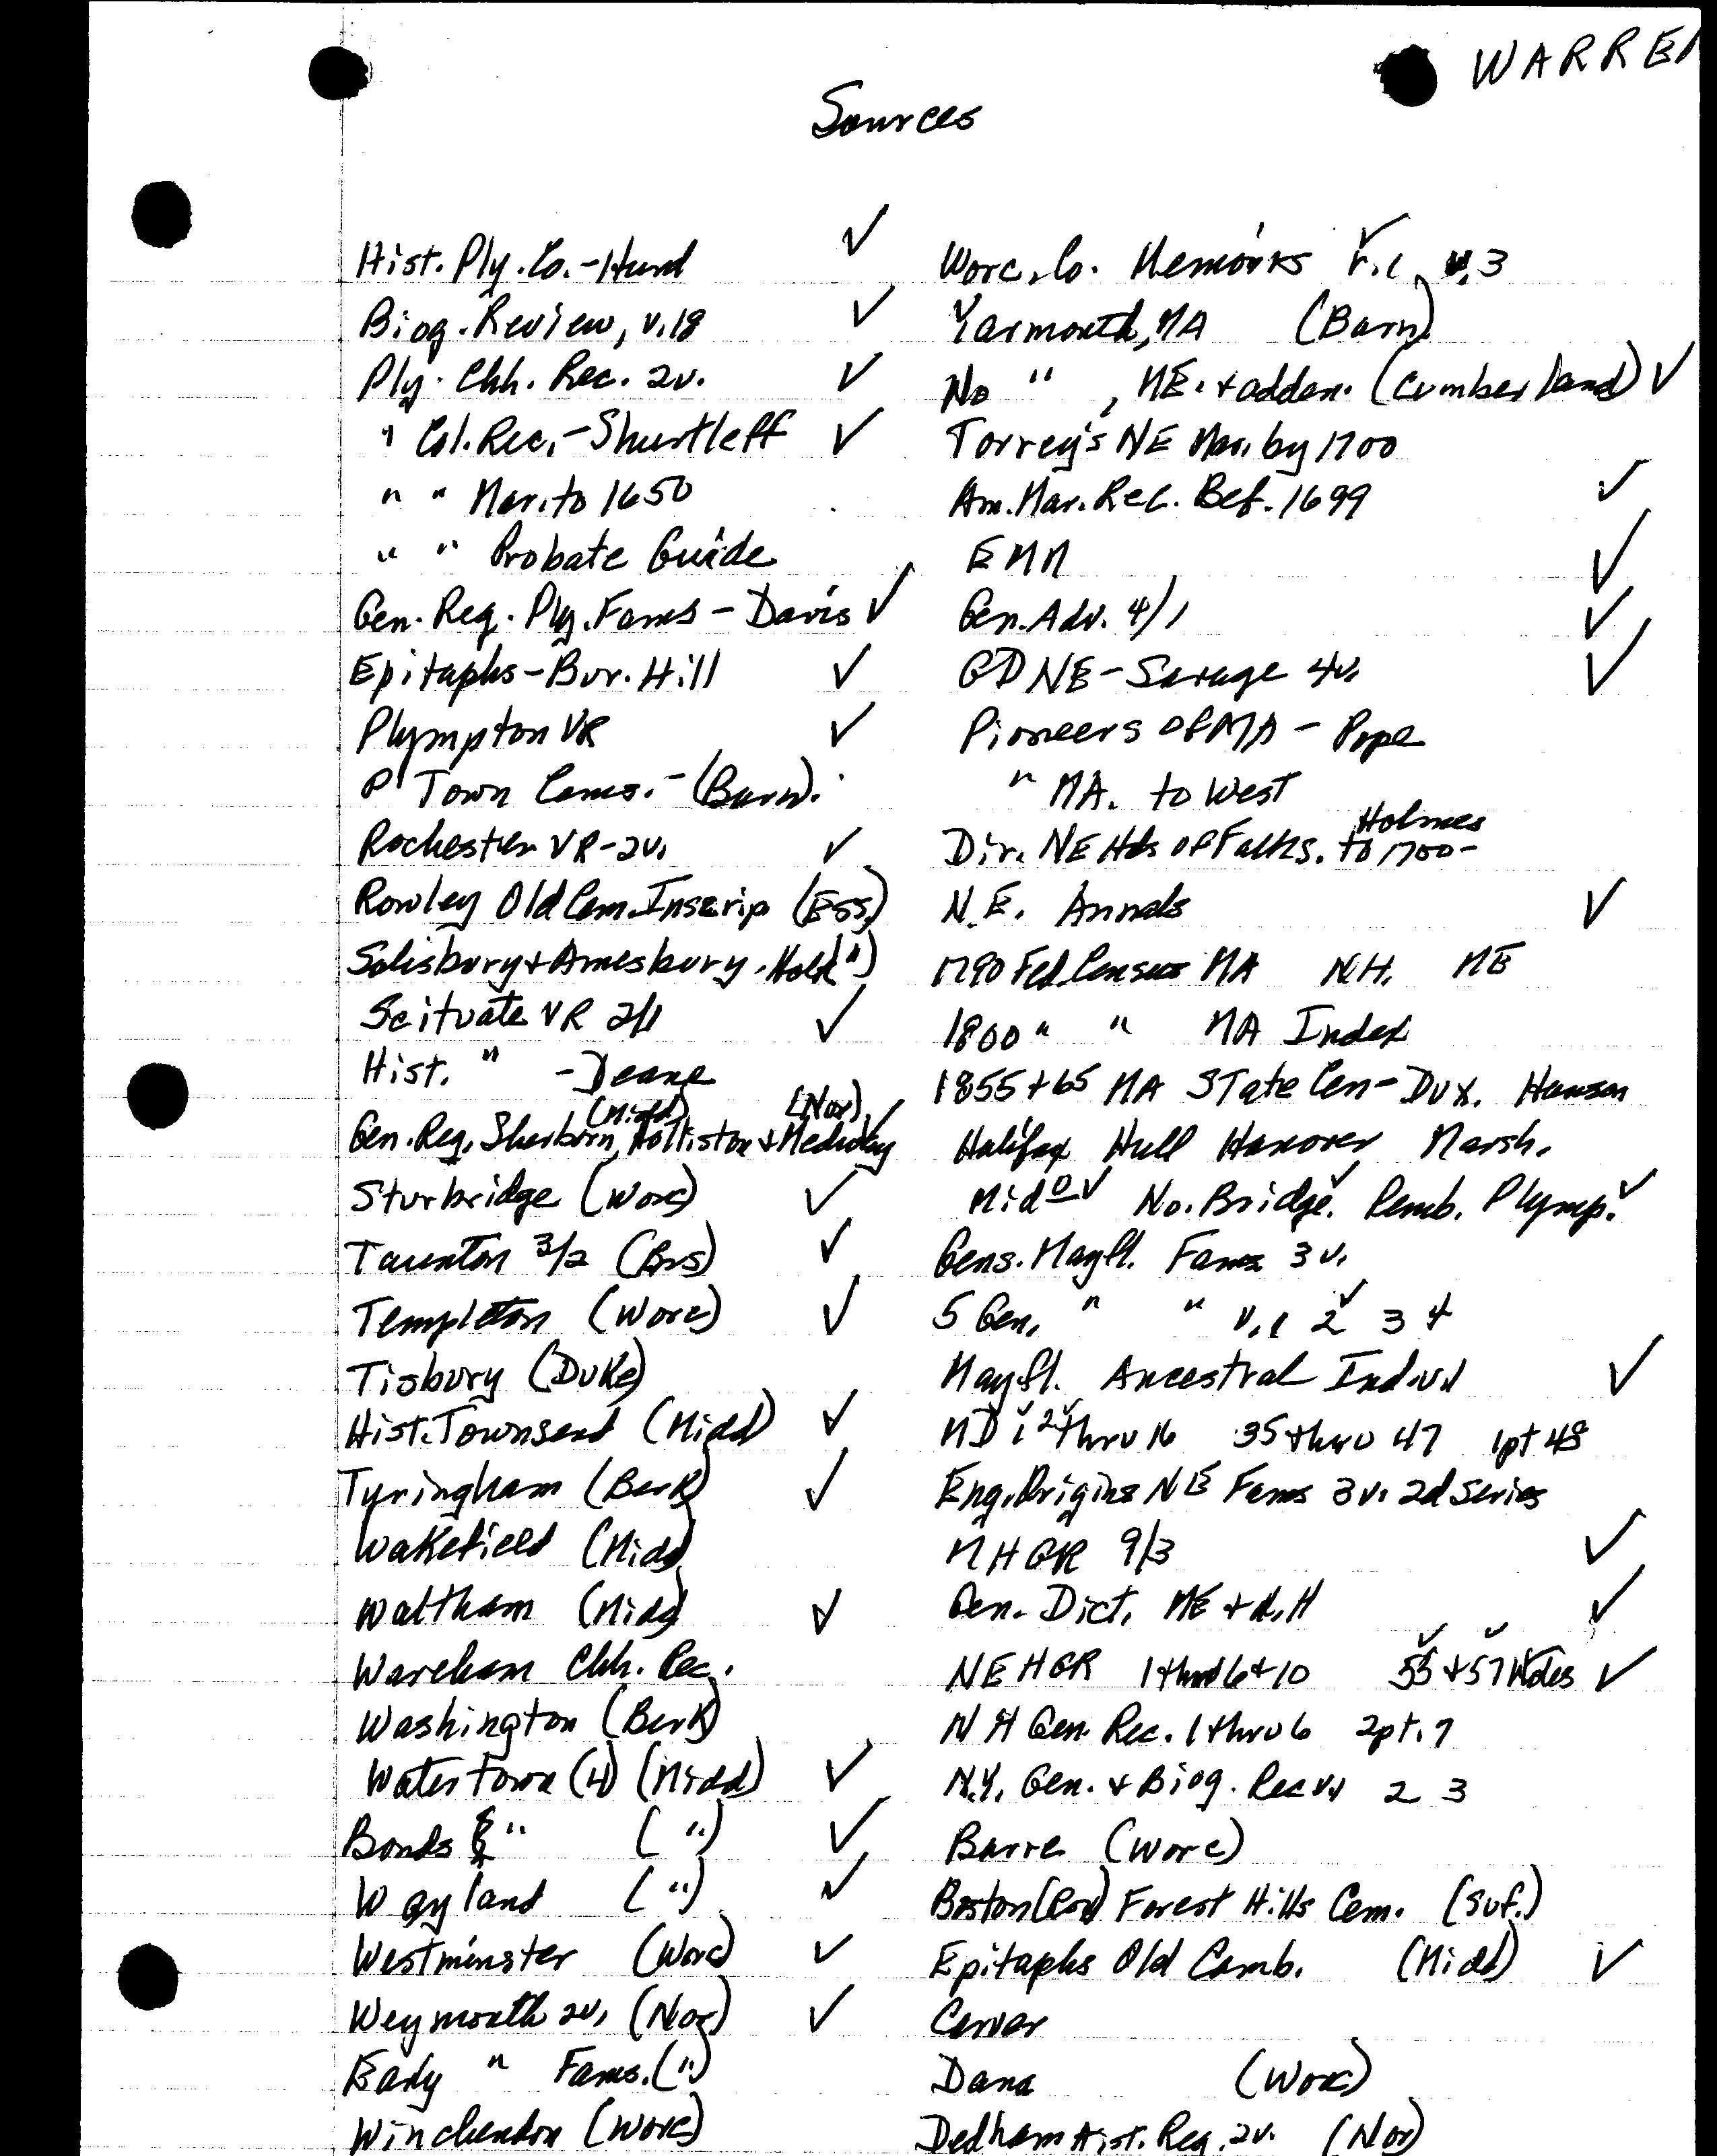 WARREN
Sources
Hist. Ply. Co. - Hurd ✓
Biog. Review, v.18 ✓
Ply. Chh. Rec. 2v. ✓
" Col. Rec. - Shurtleff ✓
" " Mar. to 1650
" " Probate Guide
Gen. Reg. Ply. Fams - Davis ✓
Epitaphs - Bur. Hill ✓
Plympton VR ✓
P'Town Cems. - (Barn).
Rochester VR - 2v. ✓
Rowley Old Cem. Inscrip (Ess.)
Salisbury + Amesbury - ")
Scituate VR 2/1 ✓
Hist. " - Deane
(Midd) (Nor).
Gen. Reg. Sherborn, Holliston + Medway ✓
Sturbridge (Worc) ✓
Taunton 3/2 (Brs) ✓
Templeton (Worc) ✓
Tisbury (Duke)
Hist. Townsend (Midd) ✓
Tyringham (Berk) ✓
Wakefield (Midd)
Waltham (Midd) ✓
Wareham Chh. Rec.
Washington (Berk)
Watertown (4) (Midd) ✓
Bonds " (") ✓
Wayland (") ✓
Westminster (Worc) ✓
Weymouth 2v. (Nor) ✓
Early " Fams. (")
Winchendon (Worc)
Worc. Co. Memoirs v.1 ✓ v.3
Yarmouth, MA (Barn)
No " , ME. + adden. (Cumberland) ✓
Torrey's NE Mar. by 1700
Am. Mar. Rec. Bef. 1699 ✓
EMM ✓
Gen. Adv. 4/1 ✓
GDNE - Savage 4v. ✓
Pioneers of MA - Pope
" MA. to West
Holmes
Dir. NE Hds of Fams. to 1700 -
N.E. Annals ✓
1790 Fed. Census MA N.H. ME
1800 " " MA Index
1855 + 65 MA State Cen - Dux. Hanson
Halifax Hull Hanover Marsh.
Mid o ✓ No. Bridge. ✓ Pemb. Plymp. ✓
Gens. Mayfl. Fams 3v.
5 Gen. " " v.1 2 ✓ 3 4
Mayfl. Ancestral Index v.1 ✓
MD 1 ✓ 2 ✓ thru 16 35 thru 47 1pt 48
Eng. Origins NE Fams 3v. 2d series
MHGR 9/3 ✓
Gen. Dict. ME + N.H ✓
NEHGR 1 thru 6 + 10 55 ✓ + 57 ✓ ✓
NH Gen. Rec. 1 thru 6 2pt. 7
N.Y. Gen. + Biog. Rec v.1 2 3
Barre (Worc)
Boston (Rox) Forest Hills Cem. (Suf.)
Epitaphs Old Camb. (Midd) ✓
Carver
Dana (Worc)
Dedham Hist. Reg. 2v. (Nor)